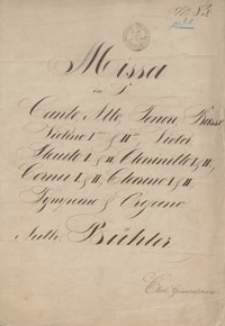 Missa
in
Canto Alto Tenore Basso
Violino I & II Viola
Flauto I & II Clarinetto I & II,
Cornu I & II, Clarino I & II,
Tympano & Organo
Bühler